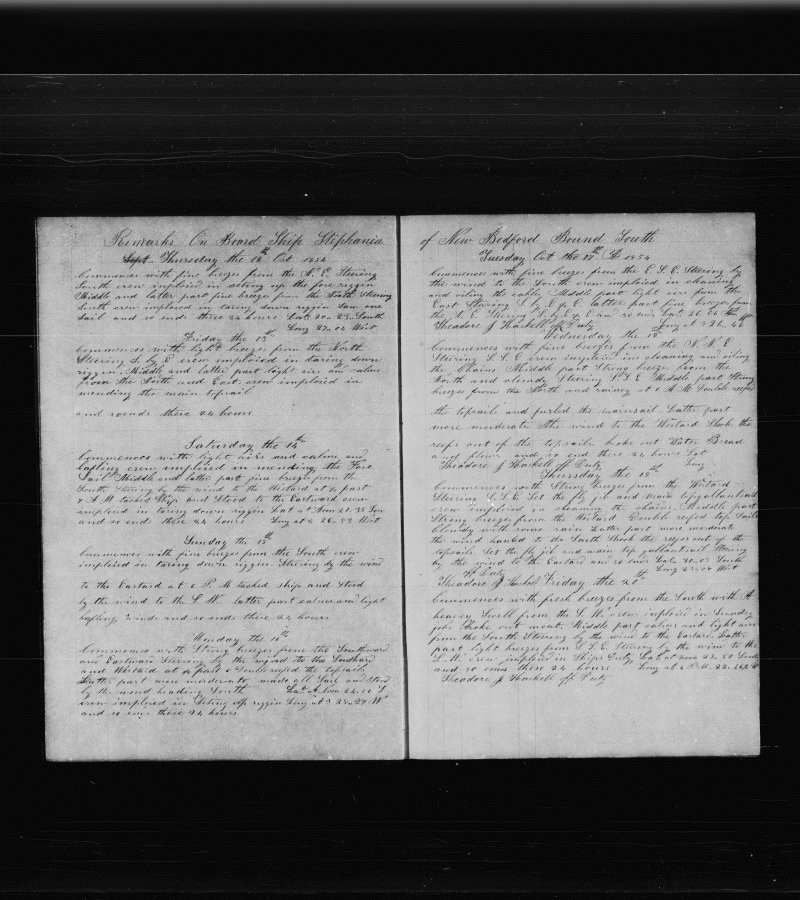 Remarks On Board Ship Stephania
Thursday the 12th Oct 1854
Commences with fine breezes from the N. E. Steering
South crew imploied in seting up the fore riggin
Middle and latter part fine breezes from the South Steering
South crew imploied in taring down riggin Saw one
Sail and so ends these 24 hours Lat 20 - 23 - South
Long 27 - 02 West
Friday the 13th
Commences with light breezes from the North
Steering S. by E crew imploied in taring down
riggin Middle and latter part light airs and calms
from the North and East crew imploied in
mending the main topsail
and so ends these 24 hours
Saturday the 14th
Commences with light airs and calms and
bafling crew imploied in mending the Fore
Sail Middle and latter part fine breezes from the
South Steering by the wind to the Westard at ½ past
A M tacked Ship and Stood to the Eastward crew
imploied in taring down riggin Lat at Noon 21 - 35 Sou
and so ends these 24 hours Long at 26 - 53 West
Sunday the 15th
Commences with fine breezes from the South crew
imploied in taring down riggin Steering by the wind
to the Eastard at 6 P. M tacked ship and Stood
by the wind to the S. W. latter part calms and light
bafling winds and so ends these 24 hours
Monday the 16th
Commences with Strong breezes from the Southward
and Eastward Steering by the wind to the Southard
and Westard at ½ past double reefed the topsails
Latter part more moderate made all Sail and Stood
by the wind heading South Lat at Noon 24 - 06 S
crew imploied in Seting up riggin Long at 25 - 27 W
and so ends these 24 hours
of New Bedford Bound South
Tuesday Oct the 17th 1854
Commences with fine breezes from the E. S. E. Steering by
the wind to the South crew imploied in cleaning
and oiling the cables Middle part light airs from the
East Steering S. by E latter part fine breezes from
the N. E Steering S. by E
Theodore J Haskell off Duty Long at 26 - 46
Wednesday the 18th
Commences with fine breezes from the N. N. E
Steering S. S. E crew imploied in cleaning and oiling
the Chains Middle part Strong breezes from the
North and cloudy Steering S. S. E Middle part Strong
breezes from the North and rainey at A. M. Double reefed
the topsails and furled the mainsail Latter part
more moderate the wind to the Westard Shook the
reefs out of the topsails broke out Water Bread
and flour and so ends these 24 hours Lat
Theodore J Haskell off Duty Long
Thursday the 19th
Commences with Strong breezes from the Westard
Steering S. S. E. Set the fly jib and main topgallantsail
crew imploied in cleaning the chains Middle part
Strong breezes from the Westard Double reefed top Sails
Cloudy with some rain Latter part more moderate
the wind hauled to the South Shook the reefs out of the
topsails Set the fly jib and main top gallantsail Steering
by the wind to the Eastard and so ends Lat 30 - 03 South
off Duty Long 23 - 00 West
Theodore J Haskell Friday the 20th
Commences with fresh breezes from the South with A
heavey Swell from the S. W. crew imploied in Sundry
jobs Broke out meat Middle part calms and light airs
from the South Steering by the wind to the Eastard Latter
part light breezes from S. S. E. Steering by the wind to the
S. W. crew imploied in Ships Duty Lat at noon South
and so ends these 24 hours Long at P. M. 22
Theodore J Haskell off Duty